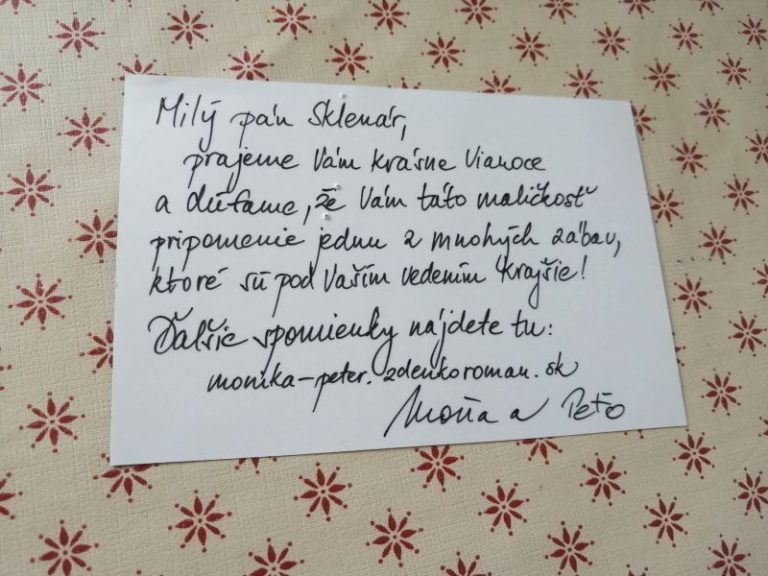 Milý pán Sklenár,
prajeme Vám krásne Vianoce
a dúfame, že Vám táto maličkosť
pripomenie jednu z mnohých zábav,
ktoré sú pod Vaším vedením krajšie!
Ďalšie spomienky nájdete tu:
monika-peter.zdenkoroman.sk
Moňa a Peťo